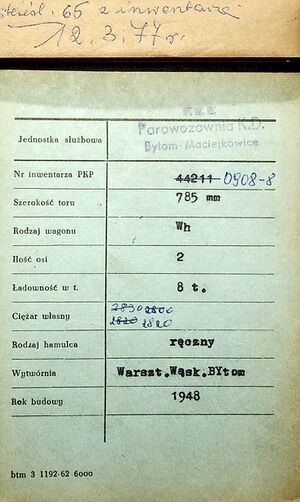 skreśl. 65 z inwentarza
12.3.77 r.
Rzg
Parowozownia K.D.
Jednostka służbowa
Bytom-Maciejkowice
Nr inwentarza PKP 44211 0908-8
Szerokość toru 785 mm
Rodzaj wagonu Wh
Ilość osi 2
Ładowność w t. 8 t.
Ciężar własny 2890 2800
2820 2820
Rodzaj hamulca ręczny
Wytwórnia Warszt.Wąsk.BYtom
Rok budowy 1948
btm 3 1192-62 6000